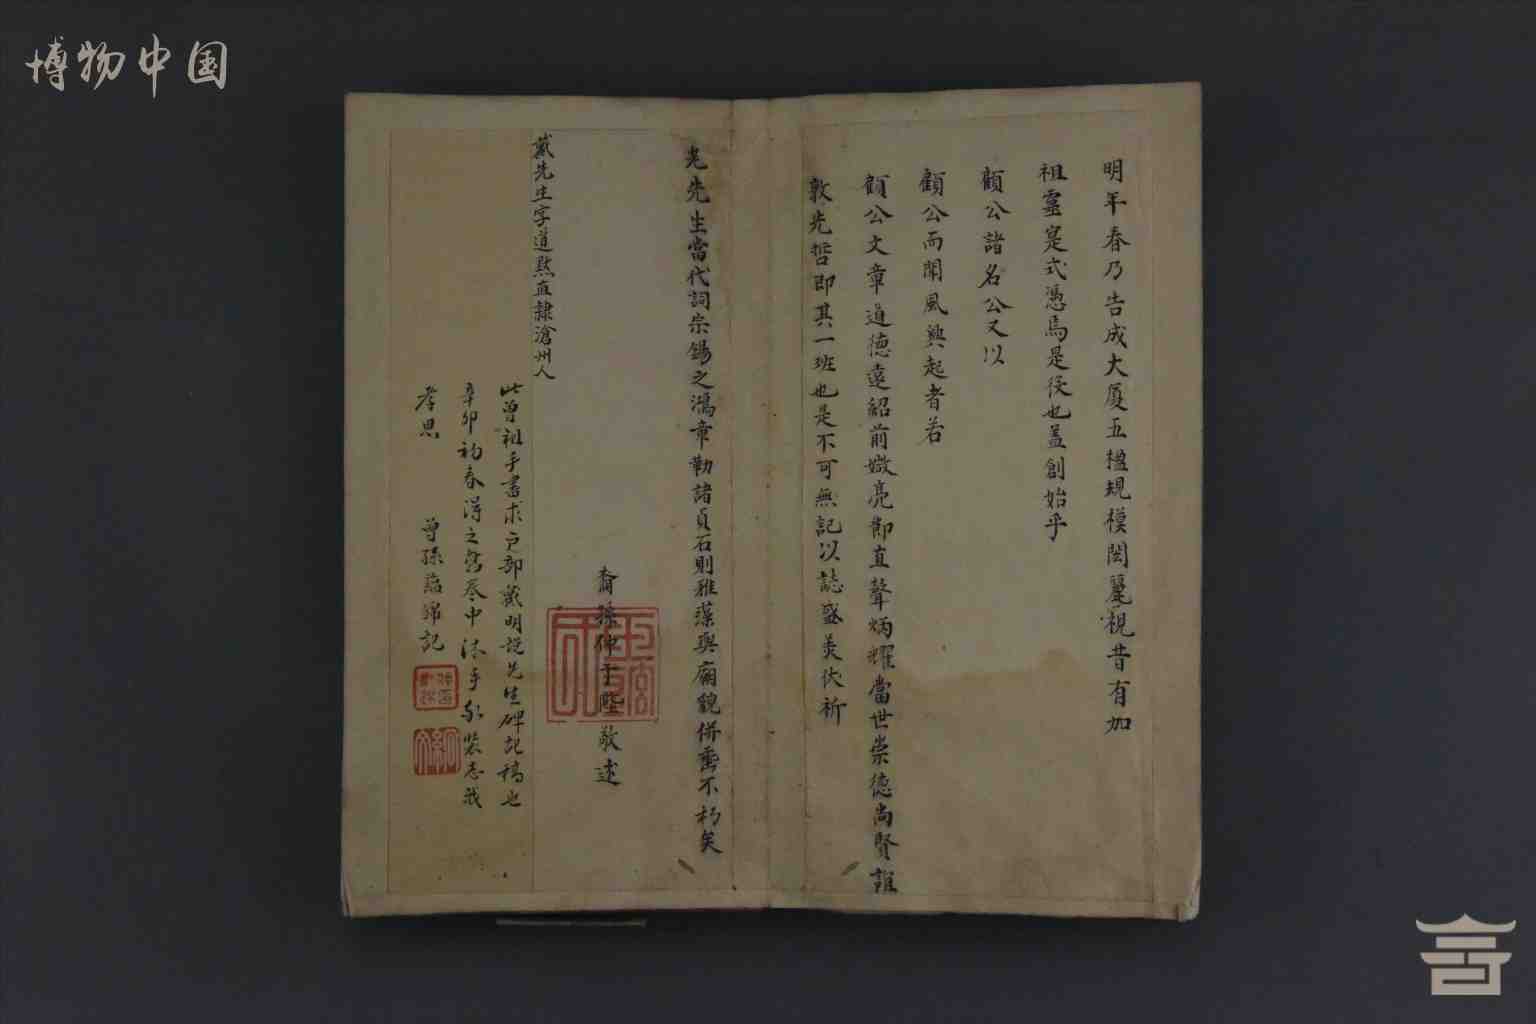 博物中国
明年春乃告成大厦五楹規模閎麗視昔有加
祖靈寔式憑焉是役也蓋創始乎
顧公諸名公又以
顧公而聞風興起者若
顧公文章道德遠紹前媺亮節直聲炳耀當世崇德尚賢誰
敦先哲即其一班也是不可無記以誌盛美伏祈
老先生當代詞宗錫之鴻章勒諸貞石則雅藻與廟貌併垂不朽矣
裔孫仲于陛敬述
戴先生字道默直隸滄州人
此曾祖手書求戶部戴明說先生碑記稿也
辛卯初春得之舊卷中沐手永裝志我
孝思
曾孫蘊錦記